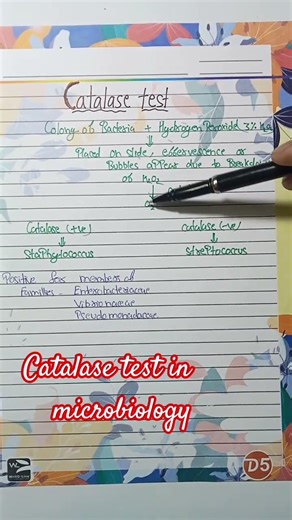 Catalase test
Colony of Bacteria + Hydrogen Peroxide 3%
Placed on slide, effervescence or
Bubbles appear due to Breakdown
of H2O2
O2
Catalase (+ve) catalase (-ve)
Staphylococcus streptococcus
Positive for members of
Families - Enterobacteriaceae
Vibrionaceae
Pseudomonadaceae
Catalase test in
microbiology
D5